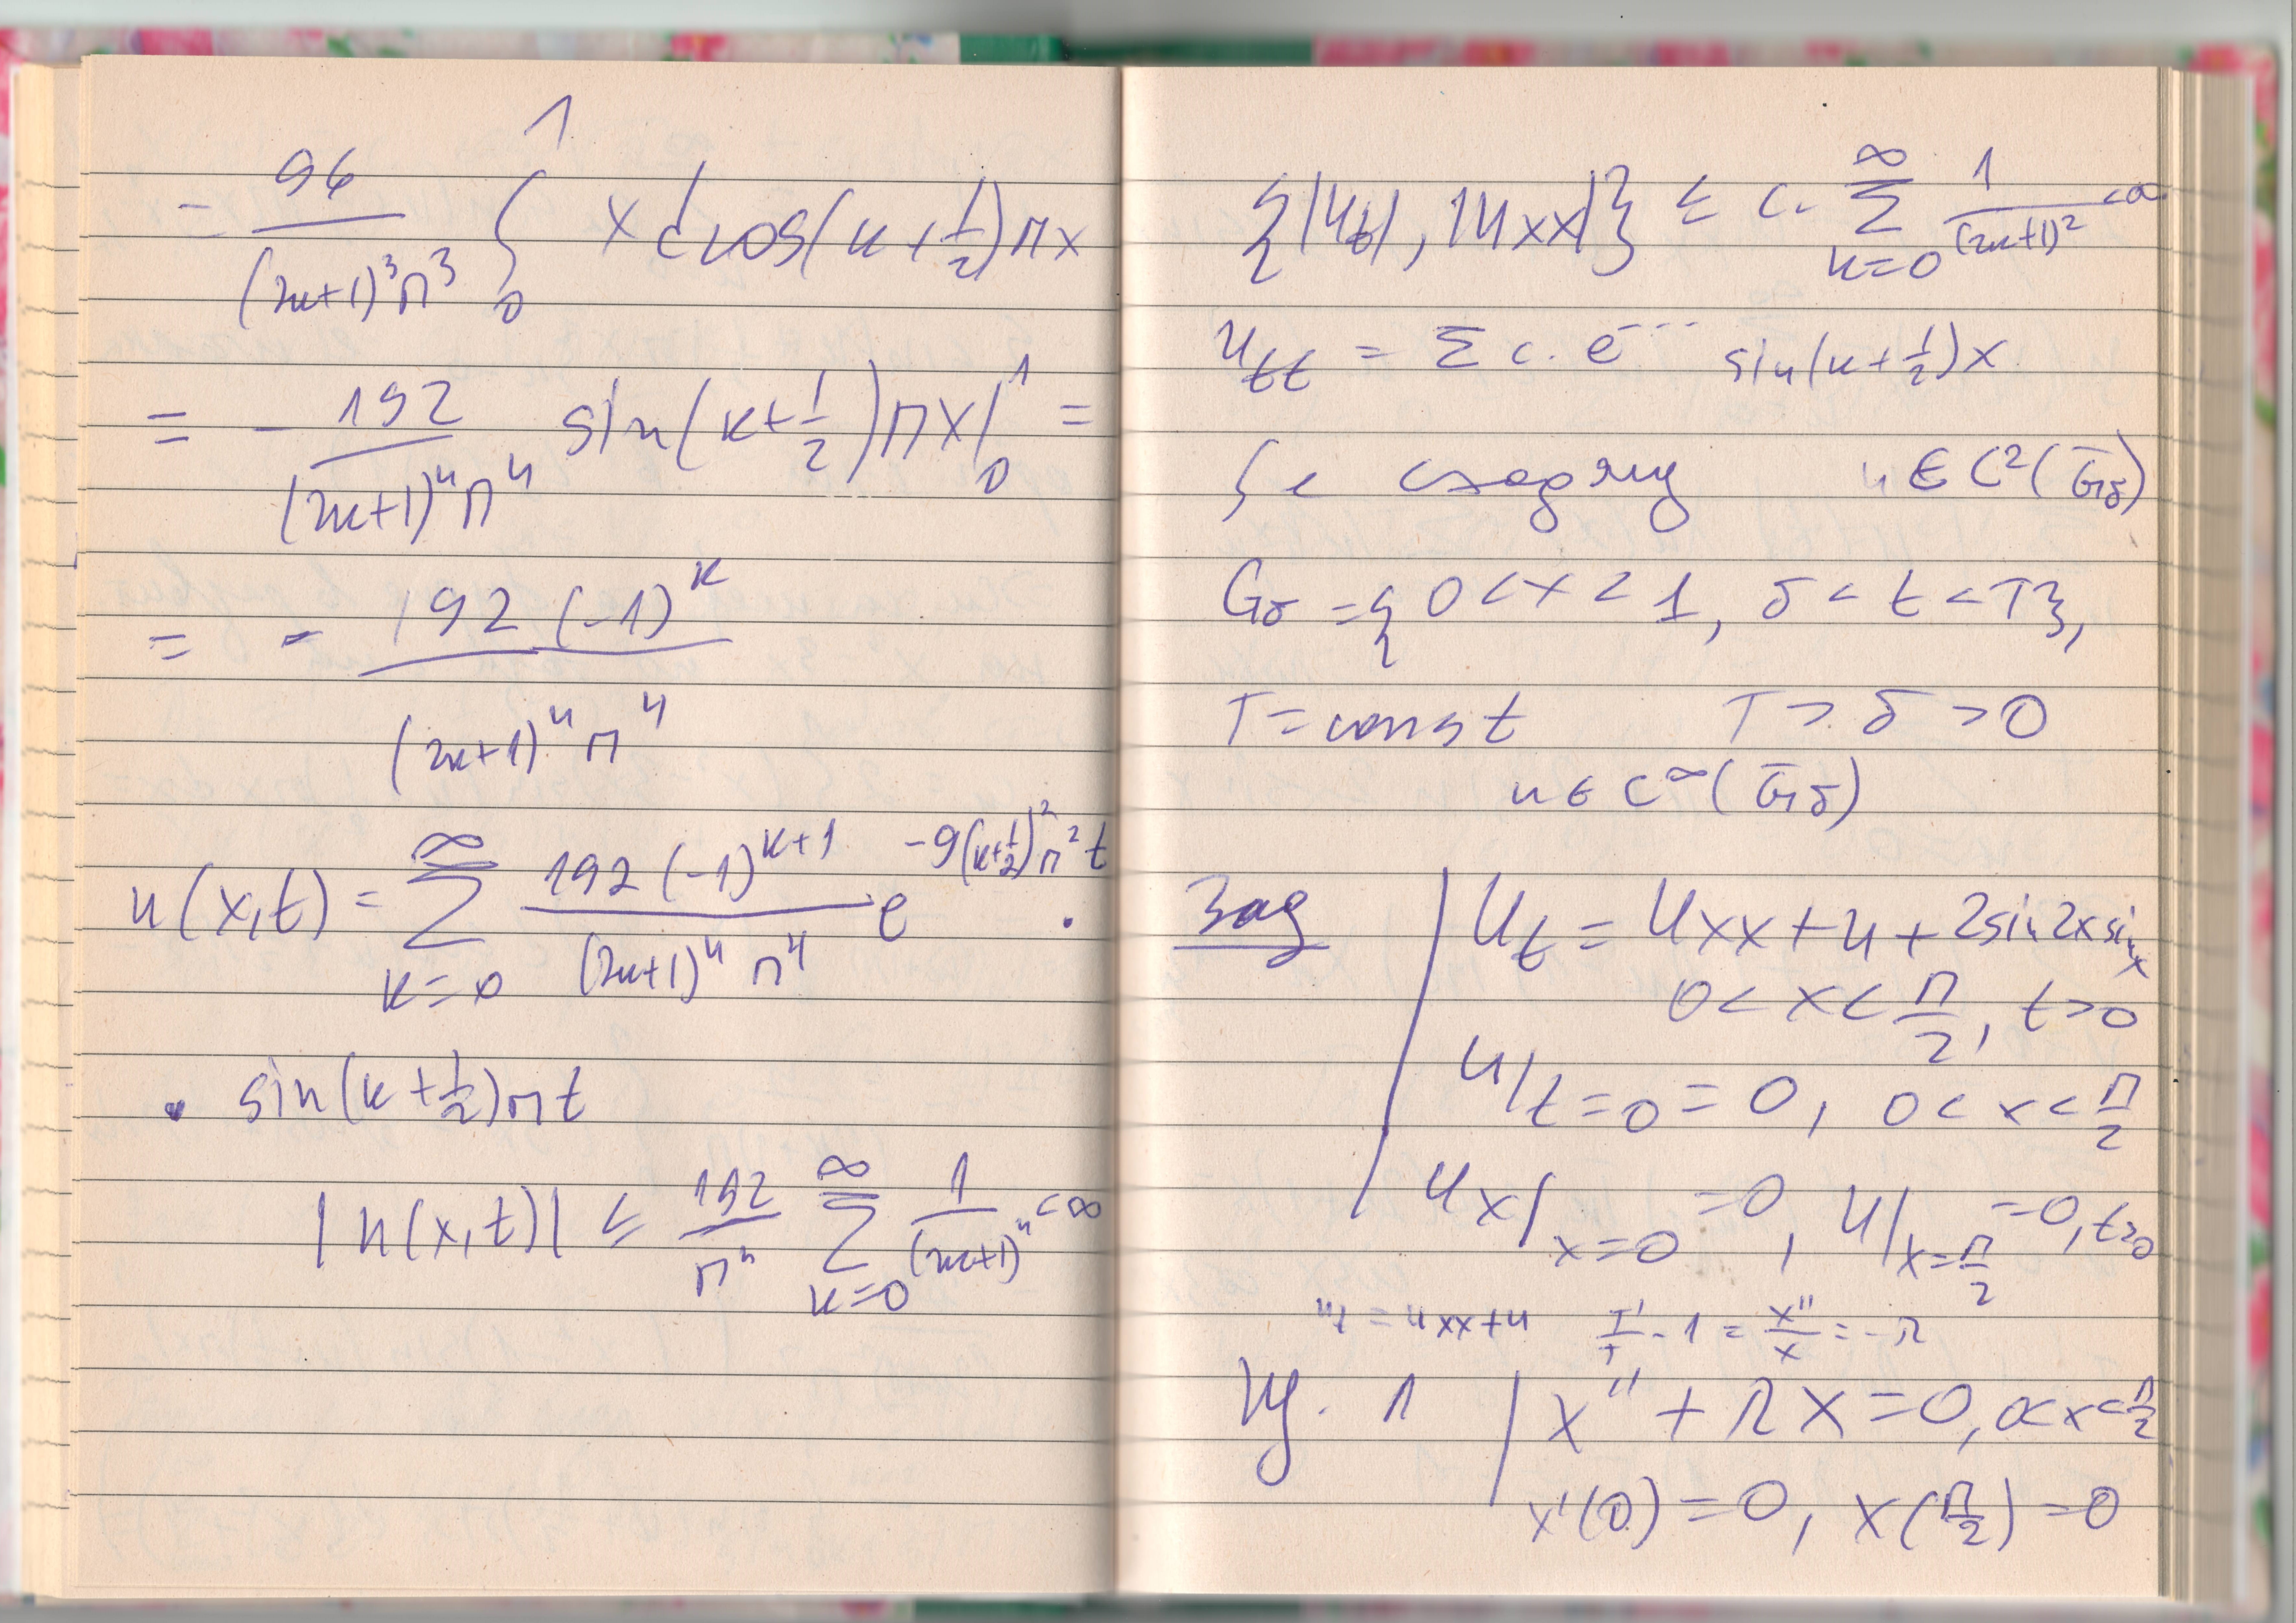 - 96/((2k+1)³π³) ∫₀¹ x d cos(k+1/2)πx
= - 192/((2k+1)⁴π⁴) sin(k+1/2)πx |₀¹ =
= - 192(-1)ᵏ/((2k+1)⁴π⁴)
u(x,t) = ∑_{k=0}^{∞} 192(-1)^{k+1}/((2k+1)⁴π⁴) e^{-9(k+1/2)²π²t} .
. sin(k+1/2)πt
|u(x,t)| ≤ 192/π⁴ ∑_{k=0}^{∞} 1/(2k+1)⁴ < ∞
{|u_t|, |u_xx|} ≤ c. ∑_{k=0}^{∞} 1/(2k+1)² < ∞
u_tt = ∑ c. e^{-...} sin(k+1/2)x
u ∈ C²(G̅_δ)
G_δ = { 0 < x < 1, δ < t < T},
T = const T > δ > 0
u ∈ C^∞(G̅_δ)
Зад | u_t = u_xx + u + 2sin2x sinx
0 < x < π/2, t > 0
u|_{t=0} = 0, 0 < x < π/2
u_x|_{x=0} = 0, u|_{x=π/2} = 0, t>0
u_t = u_xx + u T'/T - 1 = X''/X = -λ
Щ. 1 | X'' + λX = 0, 0<x<π/2
X'(0) = 0, X(π/2) = 0